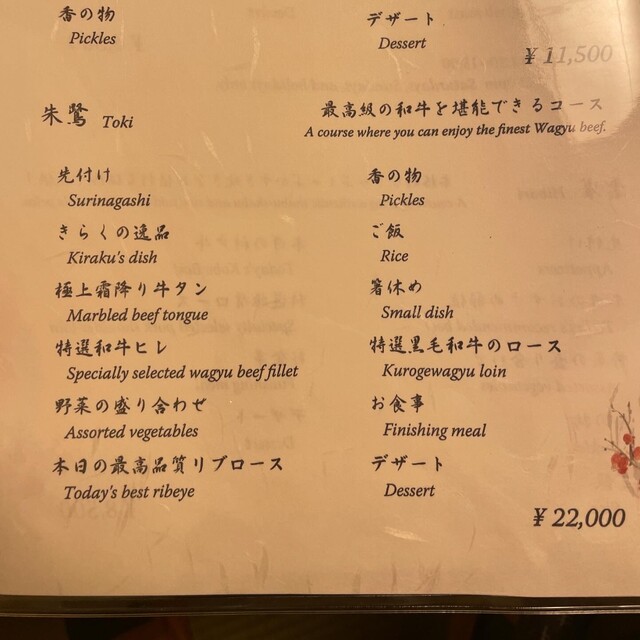 香の物
Pickles
デザート
Dessert
¥ 11,500
朱鷺 Toki
最高級の和牛を堪能できるコース
A course where you can enjoy the finest Wagyu beef.
先付け
Surinagashi
きらくの逸品
Kiraku's dish
極上霜降り牛タン
Marbled beef tongue
特選和牛ヒレ
Specially selected wagyu beef fillet
野菜の盛り合わせ
Assorted vegetables
本日の最高品質リブロース
Today's best ribeye
香の物
Pickles
ご飯
Rice
箸休め
Small dish
特選黒毛和牛のロース
Kurogewagyu loin
お食事
Finishing meal
デザート
Dessert
¥ 22,000